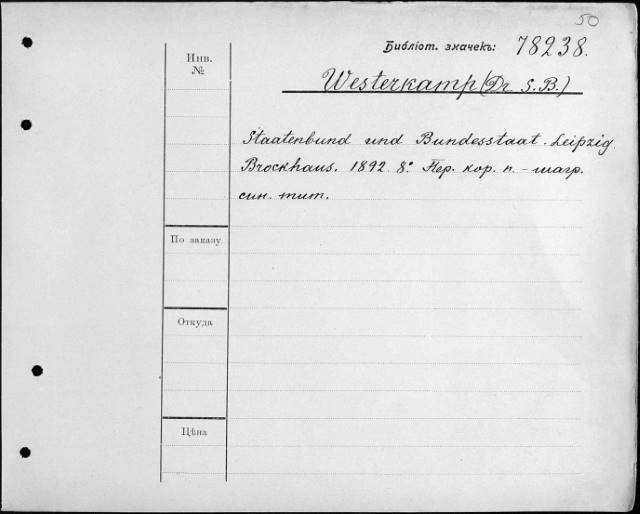 50
Библіот. значекъ: 78238.
Инв.
№
Westerkamp (Dr. J. B.)
Staatenbund und Bundesstaat. Leipzig.
Brockhaus. 1892. 8º. Пер. кор. п. - шагр.
син. тит.
По заказу
Откуда
Цѣна